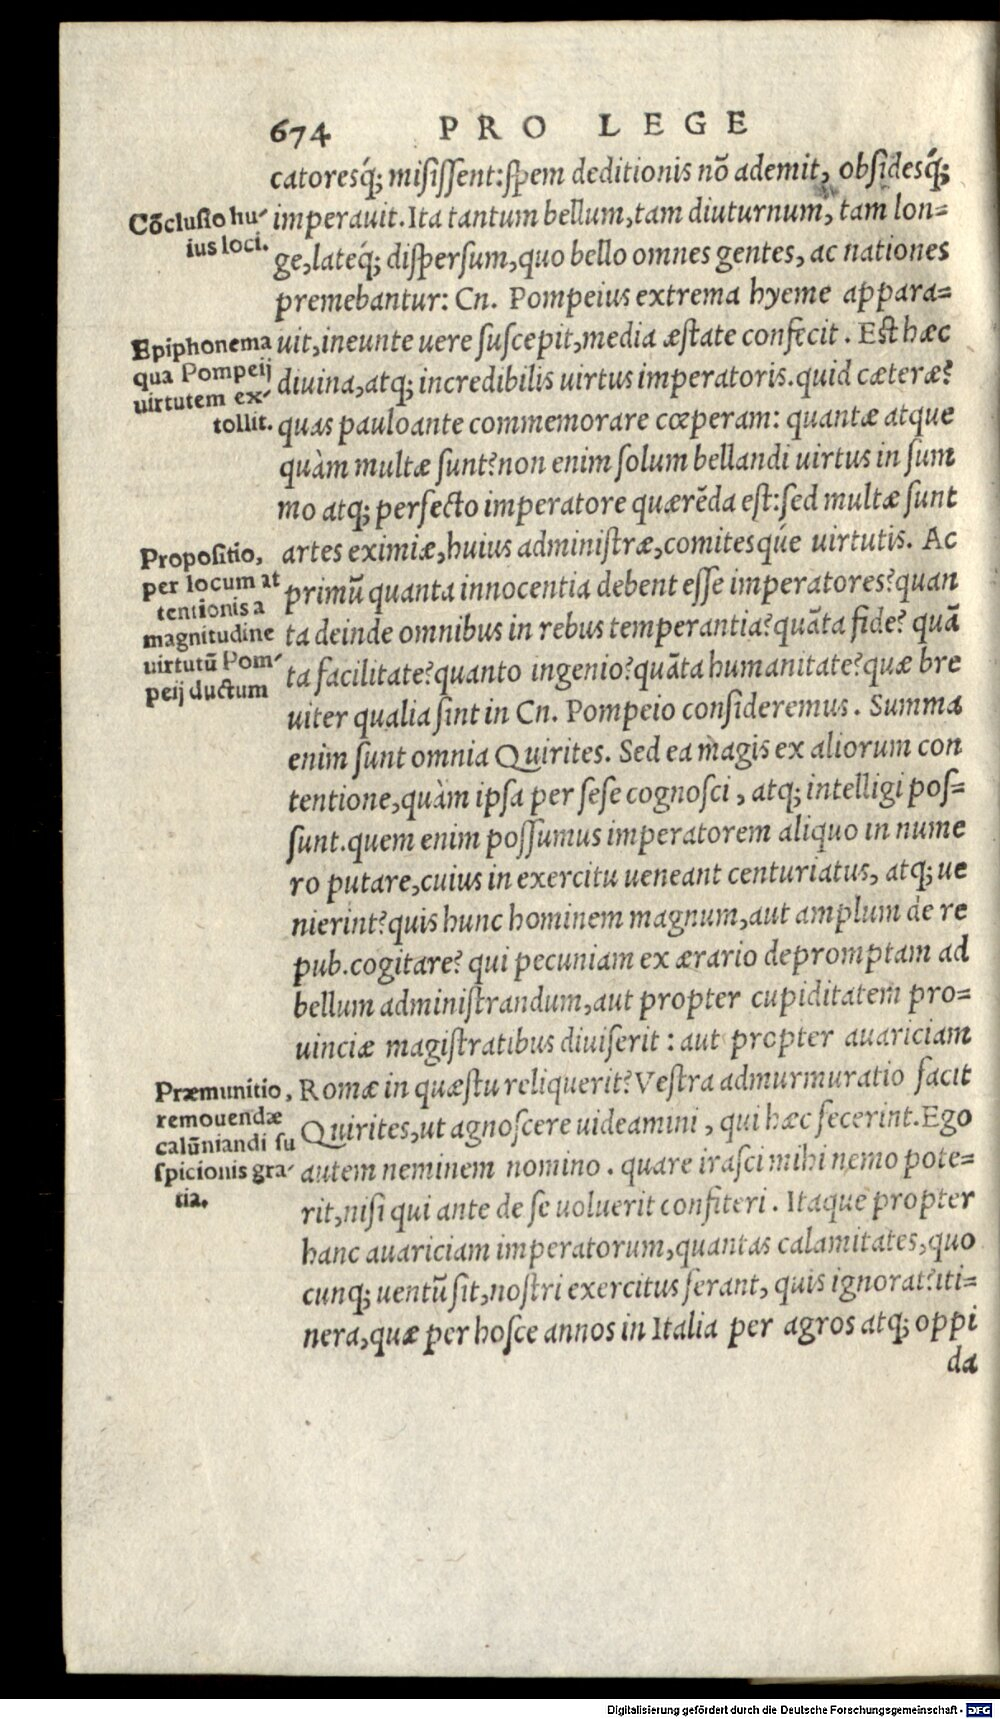 674 PRO LEGE
catoresq́; misissent: spem deditionis nō ademit, obsidesq́;
imperauit. Ita tantum bellum, tam diuturnum, tam lon-
ge, lateq́; dispersum, quo bello omnes gentes, ac nationes
premebantur: Cn. Pompeius extrema hyeme appara-
uit, ineunte uere suscepit, media æstate confecit. Est hæc
diuina, atq; incredibilis uirtus imperatoris. quid cæteræ?
quas pauloante commemorare cœperam: quantæ atque
quàm multæ sunt? non enim solum bellandi uirtus in sum
mo atq; perfecto imperatore quærēda est: sed multæ sunt
artes eximiæ, huius administræ, comitesq́ue uirtutis. Ac
primū quanta innocentia debent esse imperatores? quan
ta deinde omnibus in rebus temperantia? quāta fide? quā
ta facilitate? quanto ingenio? quāta humanitate? quæ bre
uiter qualia sint in Cn. Pompeio consideremus. Summa
enim sunt omnia Quirites. Sed ea magis ex aliorum con
tentione, quàm ipsa per sese cognosci, atq; intelligi pos-
sunt. quem enim possumus imperatorem aliquo in nume
ro putare, cuius in exercitu ueneant centuriatus, atq; ue
nierint? quis hunc hominem magnum, aut amplum de re
pub. cogitare? qui pecuniam ex ærario depromptam ad
bellum administrandum, aut propter cupiditatem pro-
uinciæ magistratibus diuiserit: aut propter auariciam
Romæ in quæstu reliquerit? Vestra admurmuratio facit
Quirites, ut agnoscere uideamini, qui hæc fecerint. Ego
autem neminem nomino. quare irasci mihi nemo pote-
rit, nisi qui ante de se uoluerit confiteri. Itaque propter
hanc auariciam imperatorum, quantas calamitates, quo
cunq; uentū sit, nostri exercitus ferant, quis ignorat? iti-
nera, quæ per hosce annos in Italia per agros atq; oppi
da
Cōclusio hu-
ius loci.
Epiphonema
qua Pompeij
uirtutem ex-
tollit.
Propositio,
per locum at
tentionis a
magnitudine
uirtutū Pom-
peij ductum
Præmunitio,
remouendæ
calūniandi su
spicionis gra-
tia.
Digitalisierung gefördert durch die Deutsche Forschungsgemeinschaft - DFG